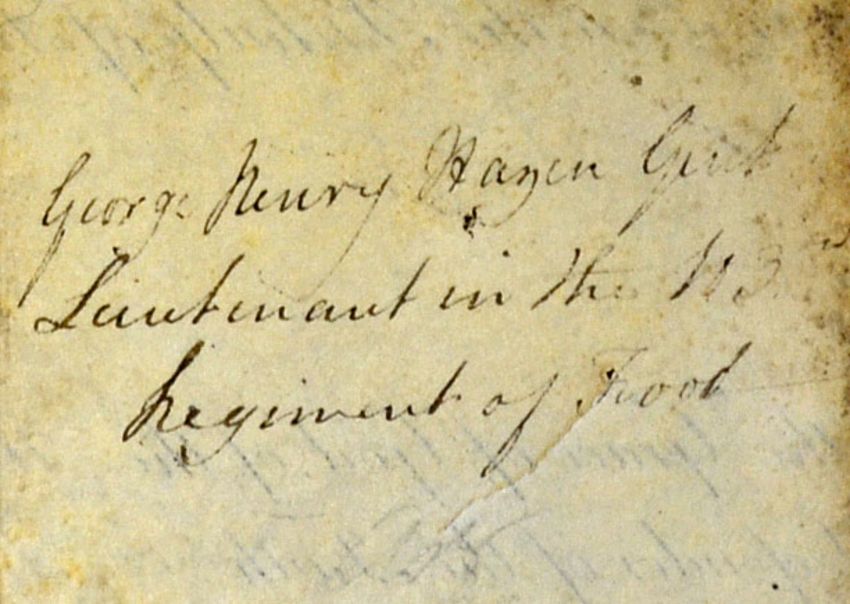 George Henry Hazen Gent
Lieutenant in the
Regiment of Foot